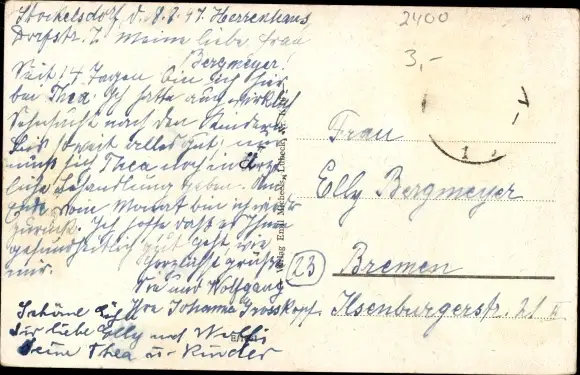 Stockelsdorf d. 8.8.47. Herrenhaus,
Dorfstr. 7. Meine liebe Frau
Bergmeyer!
Seit 14 Tagen bin ich hier
bei Thea. Ich hatte auch wirklich
Sehnsucht nach den Kindern.
Soweit alles gut, nur
muß sich Thea noch in ärzt-
liche Behandlung geben. Am
Ende vom Monat bin ich wieder
zurück. Ich hoffe daß es Ihnen
gesundheitlich gut geht wie
mir. Herzlichst grüßen
Sie und Wolfgang
Ihre Johanna Grosskopf
Schöne Grüße
für liebe Elly und Willi
Deine Thea u. Kinder
2400
3,-
Verlag Emil Lübeck
Frau
Elly Bergmeyer
23
Bremen
Ilsenburgerstr. 21 II